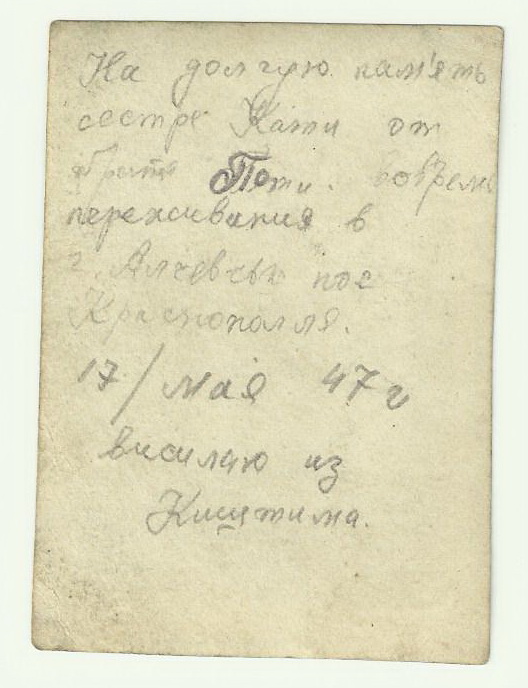 На долгую пам'ять
сестре Кати от
брата Пети. вовремя
переживания в
г. Алчевськ пос
Краснополля.
17/мая 47 г
висилаю из
Киштима.